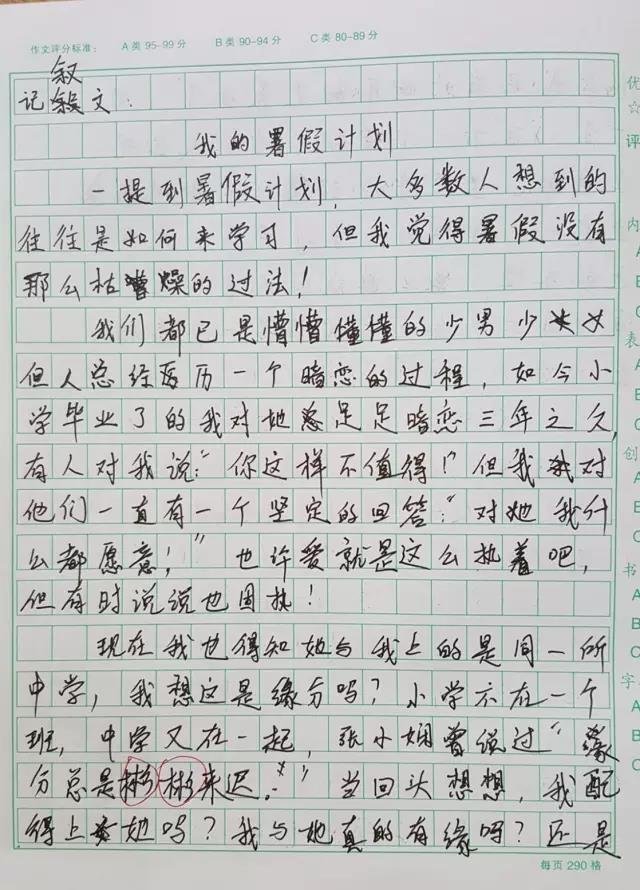 作文评分标准： A类 95-99分 B类 90-94分 C类 80-89分
叙
记叙文：
我的暑假计划
一提到暑假计划，大多数人想到的
往往是如何来学习，但我觉得暑假没有
那么枯燥的过法！
我们都已是懵懵懂懂的少男少女
但人总经历一个暗恋的过程，如今小
学毕业了的我对她足足暗恋三年之久，
有人对我说：“你这样不值得！”但我对
他们一直有一个坚定的回答：“对她我什
么都愿意！”也许爱就是这么执着吧，
但有时说说也固执！
现在我也得知她与我上的是同一所
中学，我想这是缘分吗？小学不在一个
班，中学又在一起，张小娴曾说过“缘
分总是彬彬来迟。”当回头想想，我配
得上她吗？我与她真的有缘吗？还是
每页 290 格
优
☆
评
内
A
B
C
表
A
B
C
创
A
B
C
书
A
B
C
字
A
B
C